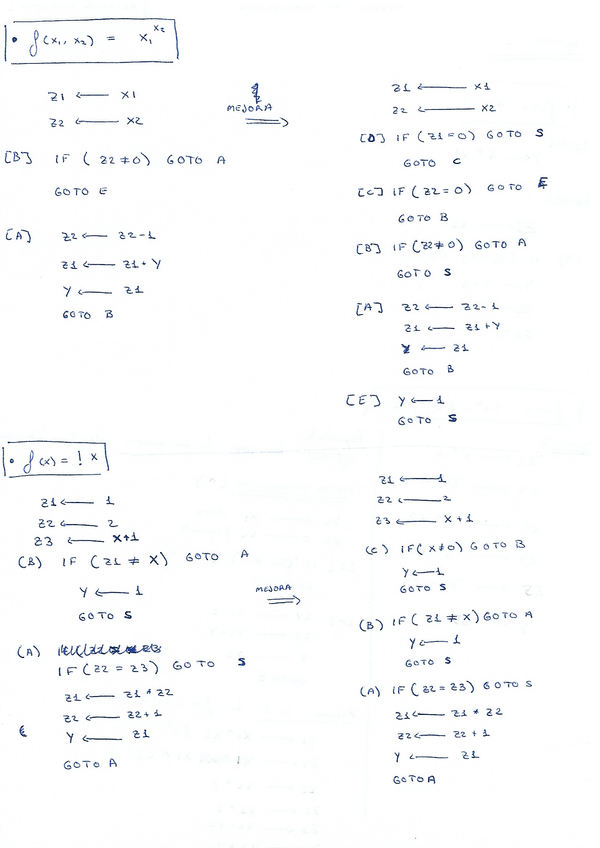 • f(x1, x2) = x1^x2
Z1 ← X1
Z2 ← X2
[B] IF (Z2 ≠ 0) GOTO A
GOTO E
[A] Z2 ← Z2-1
Z1 ← Z1+Y
Y ← Z1
GOTO B
MEJORA
⇒
Z1 ← X1
Z2 ← X2
[D] IF (Z1=0) GOTO S
GOTO C
[C] IF (Z2=0) GOTO E
GOTO B
[B] IF (Z2≠0) GOTO A
GOTO S
[A] Z2 ← Z2-1
Z1 ← Z1+Y
Y ← Z1
GOTO B
[E] Y ← 1
GOTO S
• f(x) = ! x
Z1 ← 1
Z2 ← 2
Z3 ← X+1
(B) IF (Z1 ≠ X) GOTO A
Y ← 1
GOTO S
(A)
IF (Z2 = Z3) GOTO S
Z1 ← Z1 * Z2
Z2 ← Z2+1
Y ← Z1
GOTO A
MEJORA
⇒
Z1 ← 1
Z2 ← 2
Z3 ← X+1
(C) IF (X≠0) GOTO B
Y ← 1
GOTO S
(B) IF (Z1 ≠ X) GOTO A
Y ← 1
GOTO S
(A) IF (Z2=Z3) GOTO S
Z1 ← Z1 * Z2
Z2 ← Z2 + 1
Y ← Z1
GOTO A